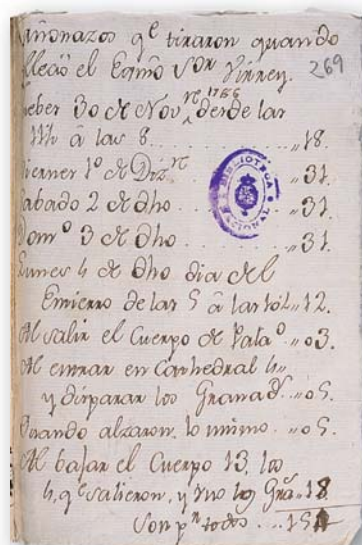 Cañonazos q.e tiraron quando
fallecio el Exmo S.or Virrey.
269
Jueber 30 de Nov.re 1786 desde las
á las 8. „18.
Vierner 1º de Diz.re „31.
Sabado 2 de dho „31.
Dom.o 3 de dho „31.
Lunes 4 de dho dia del
Entierro de las 5 á las „12.
Al salir el Cuerpo de Pala.o „03.
Al entrar en Cathedral 4„
y disparar los Granad.s „05.
Quando alzaron, lo mismo „05.
Al bajar el Cuerpo 13, los
4, q.e salieron, y los Gra.s „18
Son p.r todos
BIBLIOTECA NACIONAL